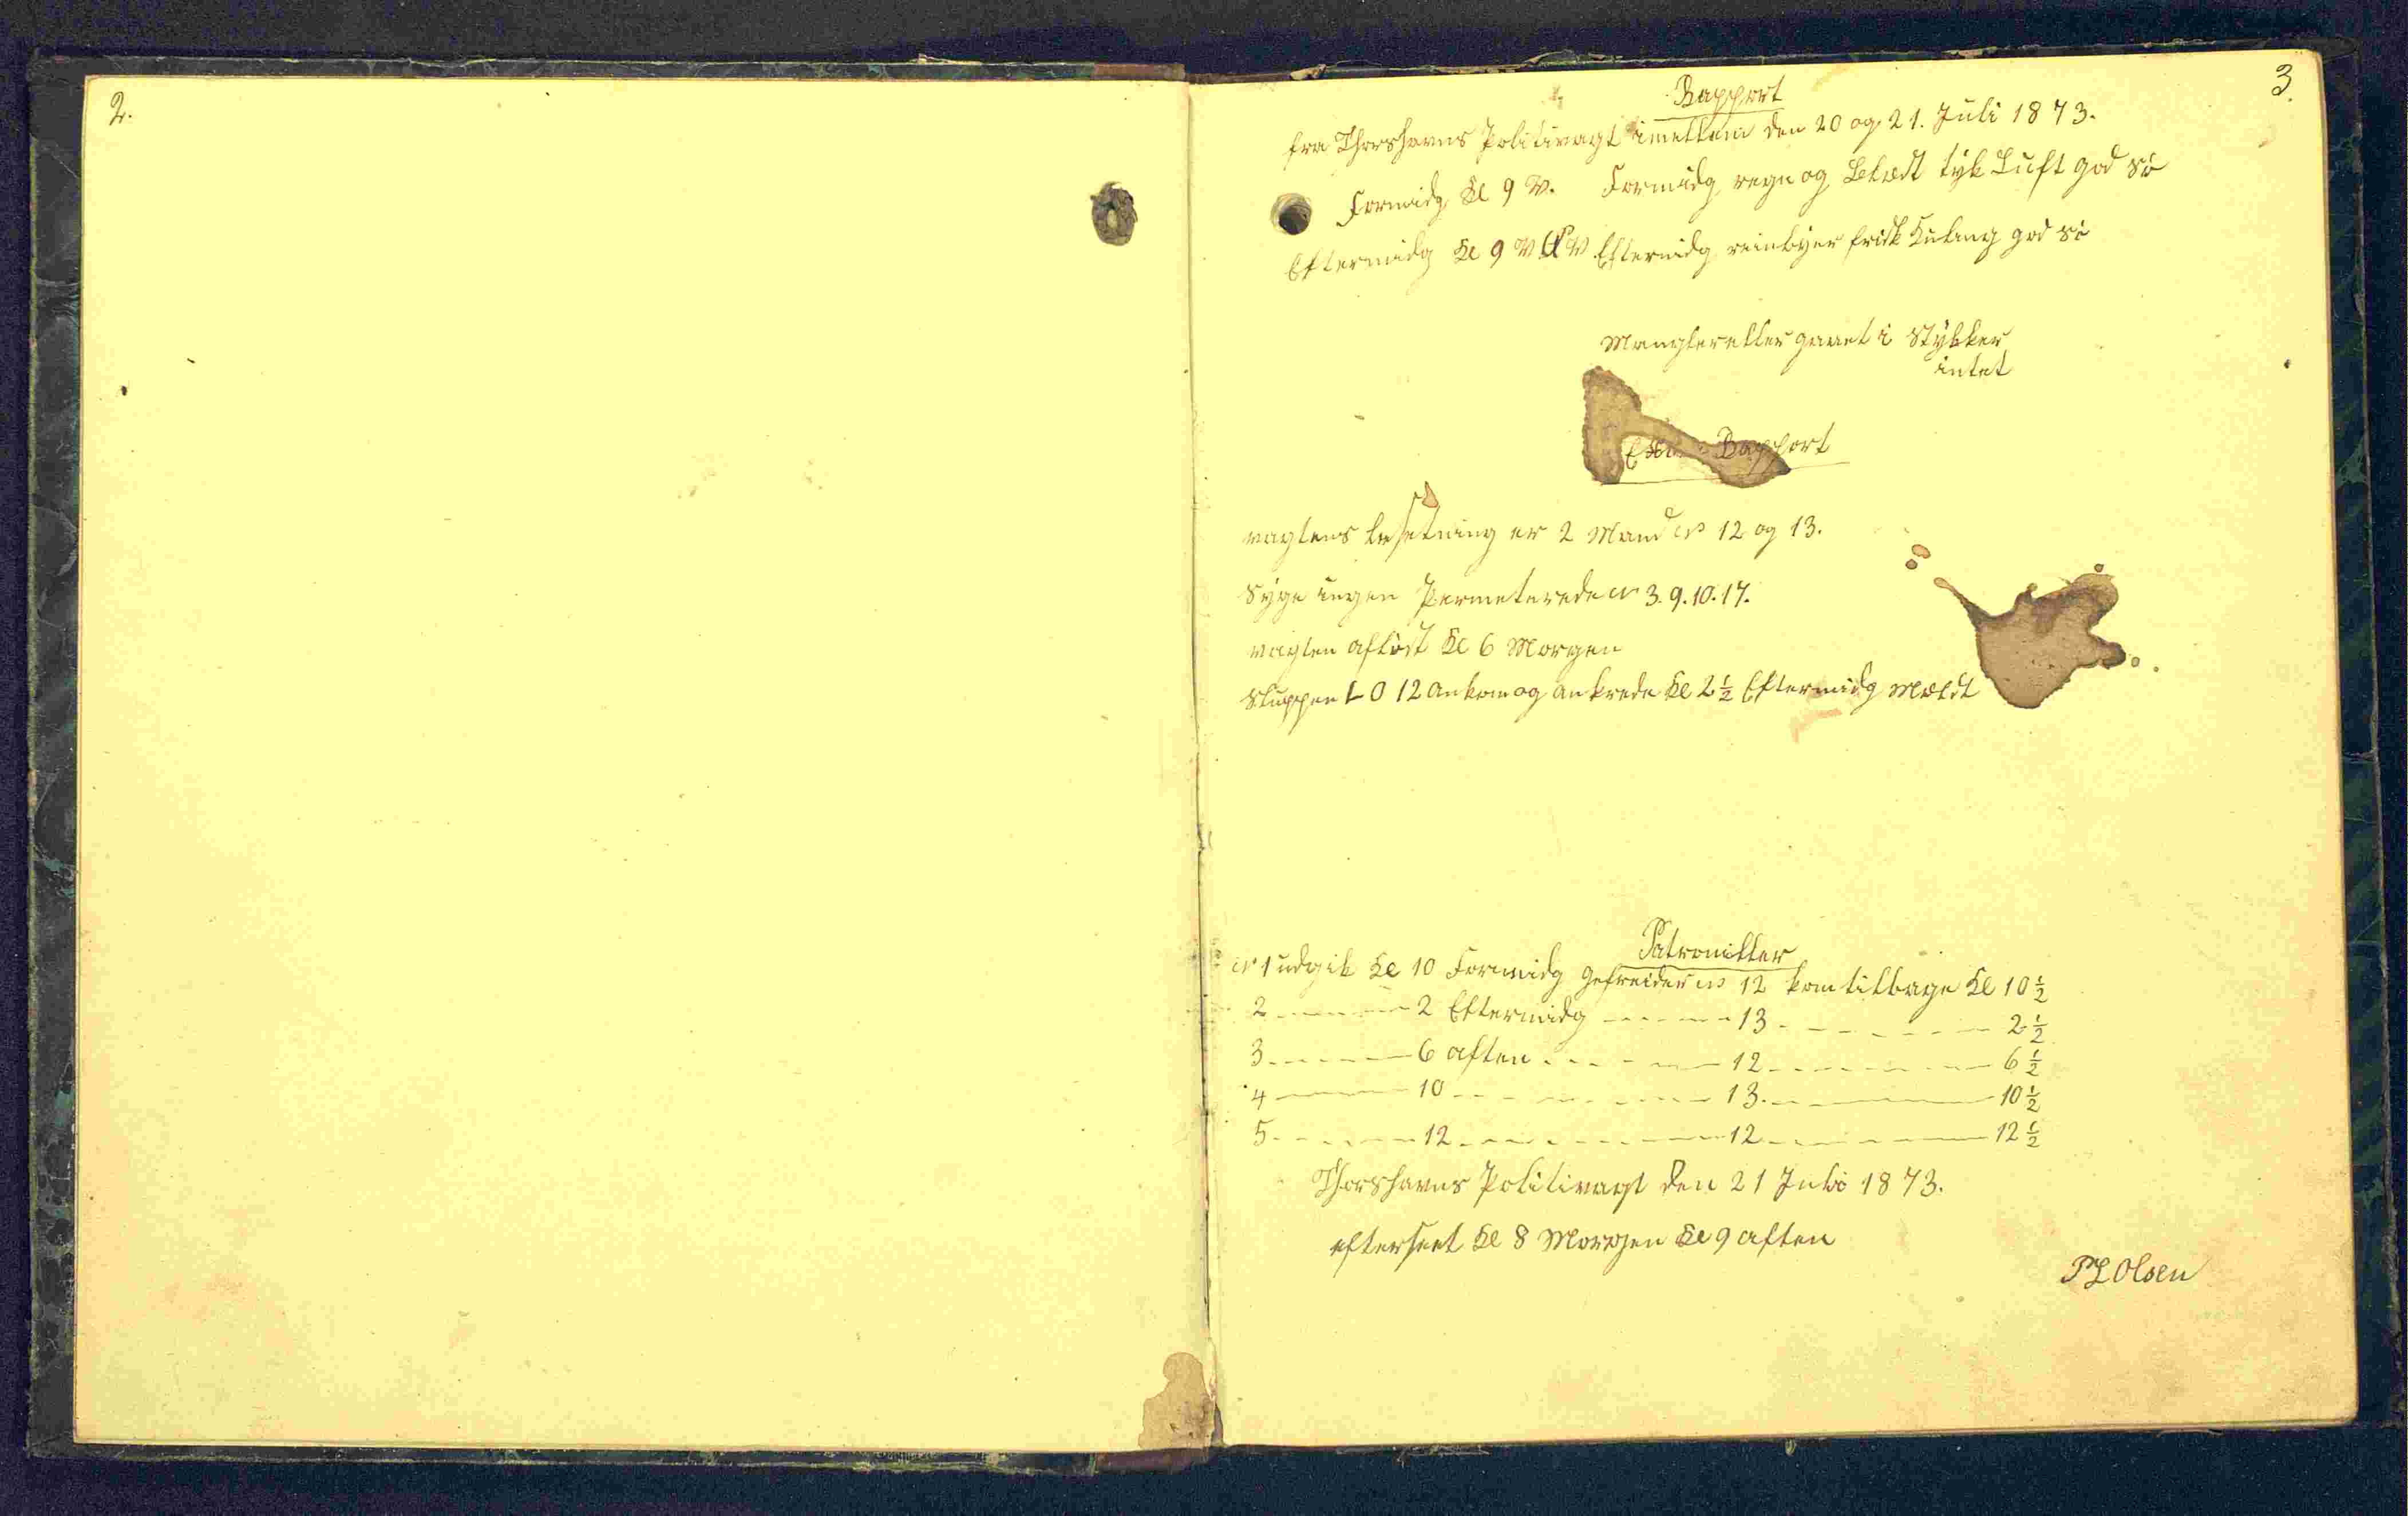 2.
3.
Rapport
fra Thorshavns Politivagt imellem den 20 og 21. Juli 1873.
Formidg Kl 9 V. Formidg regn og tyk Luft god Sö
Eftermidg Kl 9 V Eftermidg reinbyer frisk Kuling god Sö
Mangler eller gaaet i Stykker
intet
Rapport
vagtens besetning er 2 Mand No 12 og 13.
Syge ingen Permeterede No 3. 9. 10. 17.
vagten aflöst Kl 6 Morgen
Sluppen L O 12 Ankom og ankrede Kl 2½ Eftermidg Meldt
Patrouiller
No 1 udgik Kl 10 Formidg Gefreider No 12 kom tilbage Kl 10½
2 2 Eftermidg 13 2½
3 6 aften 12 6½
4 10 13 10½
5 12 12 12½
Thorshavns Politivagt den 21 Juli 1873.
efterseet Kl 8 Morgen Kl 9 aften
P L Olsen